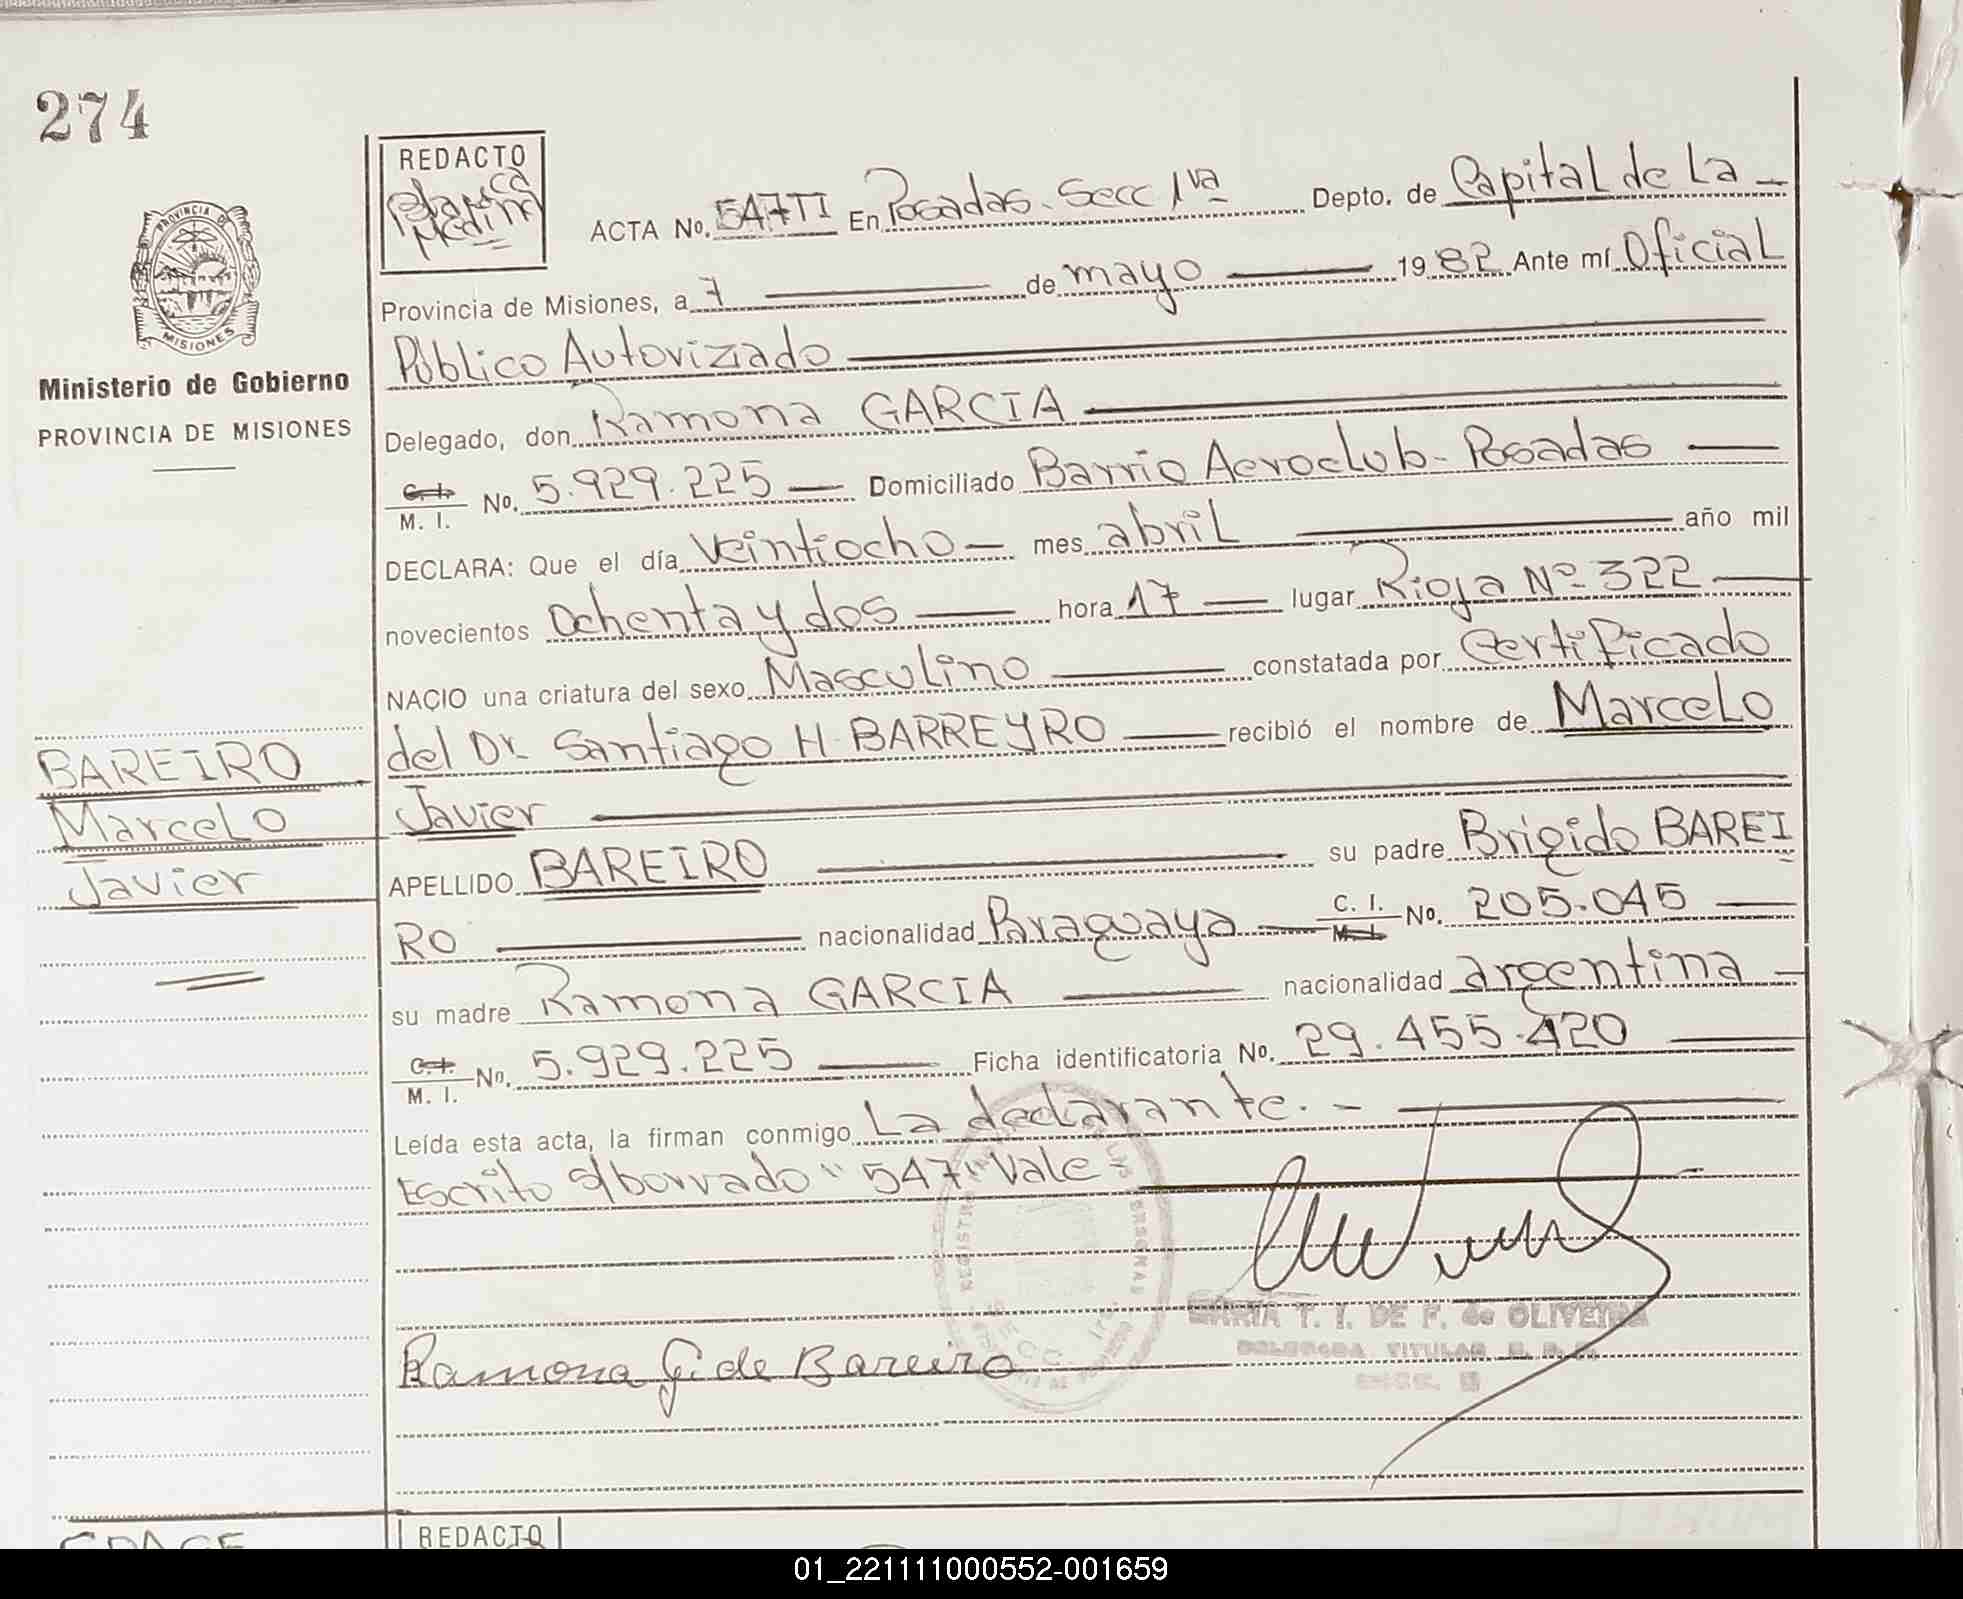 274
REDACTO
Blanca
Medina
ACTA No. 547TI En Posadas. Secc 1va Depto. de Capital de La
Provincia de Misiones, a 7 de mayo 1982 Ante mí Oficial
Público Autorizado
PROVINCIA DE
MISIONES
Ministerio de Gobierno
PROVINCIA DE MISIONES
Delegado, don Ramona GARCIA
C. I.
M. I. No. 5.929.225 Domiciliado Barrio Aeroclub - Posadas
DECLARA: Que el día Veintiocho mes abril año mil
novecientos Ochenta y dos hora 17 lugar Rioja Nº 322
NACIO una criatura del sexo Masculino constatada por Certificado
del Dr. Santiago H. BARREYRO recibió el nombre de Marcelo
Javier
BAREIRO
Marcelo
Javier
APELLIDO BAREIRO su padre Brigido BAREI
RO nacionalidad Paraguaya C. I. M. I. No. 205.045
su madre Ramona GARCIA nacionalidad argentina
C. I.
M. I. No. 5.929.225 Ficha identificatoria No. 29.455.420
Leída esta acta, la firman conmigo La declarante. -
Escrito s/borrado "547" Vale -
MARIA T. I. DE F. de OLIVEIRA
DELEGADA TITULAR
Ramona G. de Bareiro
REDACTO
01_221111000552-001659